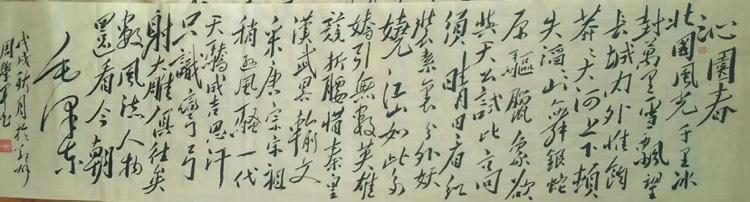 沁園春
北國風光千里冰
封萬里雪飄望
长城内外惟餘
莽々大河上下頓
失滔々山舞银蛇
原驅臘象欲
與天公試比高
須晴日看红
装素裹分外妖
嬈江山如此多
嬌引無數英雄
競折腰惜秦皇
漢武畧輸文
采唐宗宋祖
稍遜風騷一代
天驕成吉思汗
只識彎弓
射大雕俱往矣
數風流人物
還看今朝
毛澤东
戊戌秋月於
周